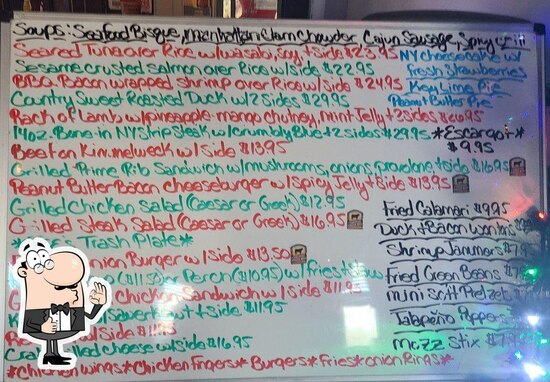 Soups: Seafood Bisque, Manhattan Clam Chowder Cajun Sausage, Spicy
Seared Tuna over Rice w/wasabi, soy, + Side $23.95
NY cheesecake w/
fresh strawberries
Sesame crusted salmon over Rice w/side $22.95
Key Lime Pie
BBQ Bacon wrapped Shrimp over Rice w/ side $24.95
Peanut Butter Pie
Country Sweet Roasted Duck w/2 Sides $29.95
Rack of Lamb w/pineapple-mango chutney, mint Jelly + 2 sides
14oz. Bone-in NY Strip Steak w/crumbly Blue + 2 sides $29.95
*Escargot*
$9.95
Beef on Kimmelweck w/ Side $13.95
Grilled Prime Rib Sandwich w/mushrooms, onions, provolone + side $16.95
Peanut Butter Bacon cheeseburger w/ Spicy Jelly + Side $13.95
Grilled Chicken Salad (Caesar or Greek) $12.95
Grilled Steak Salad (Caesar or Greek) $16.95
Trash Plate*
Onion Burger w/ Side $13.50
or Perch ($10.95) w/ fries + slaw
Chicken Sandwich w/ side $11.95
+ side $11.95
w/ Side $11.95
Grilled cheese w/side $16.95
*Chicken Wings* Chicken Fingers* Burgers* Fries* Onion Rings*
Fried Calamari $9.95
Duck + Bacon Wontons
Shrimp Jammers
Fried Green Beans
mini Soft Pretzels
Jalapeño Poppers
Mozz Stix